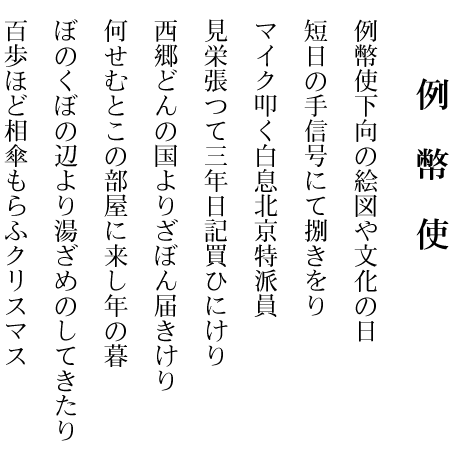 例幣使
例幣使下向の絵図や文化の日
短日の手信号にて捌きをり
マイク叩く白息北京特派員
見栄張つて三年日記買ひにけり
西郷どんの国よりざぼん届きけり
何せむとこの部屋に来し年の暮
ぼのくぼの辺より湯ざめのしてきたり
百歩ほど相傘もらふクリスマス